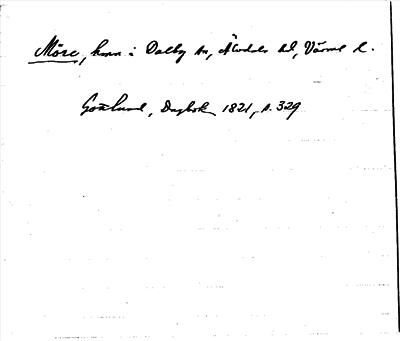 Möre, hmn i Dalby sn, Älvdals hd, Värml l.
Gottlund, Dagbok 1821, s. 329